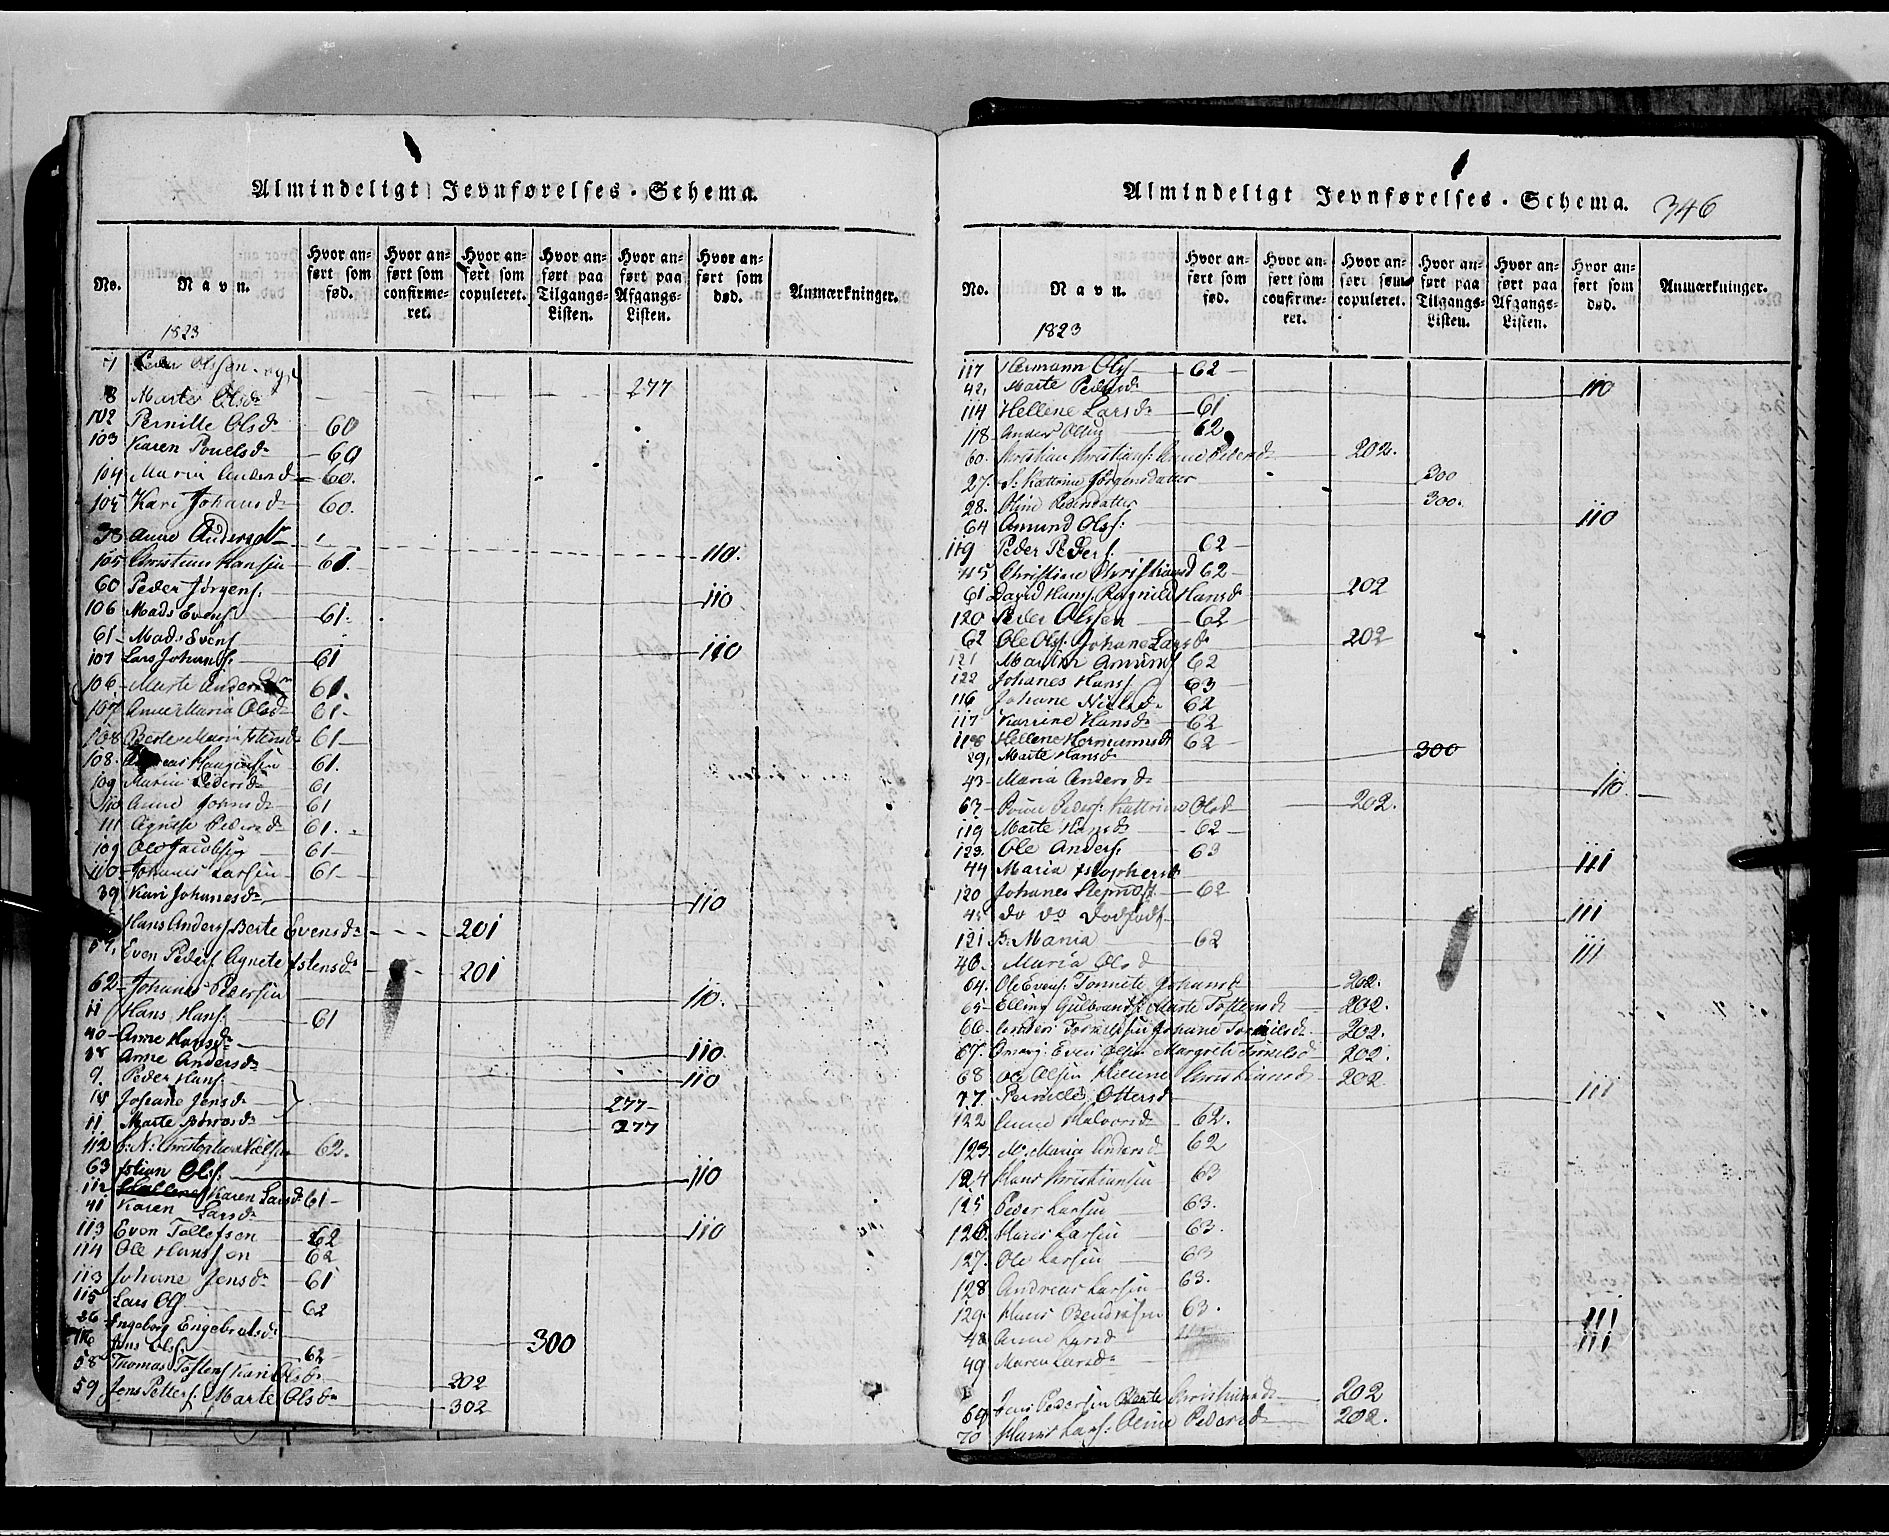 Almindeligt Jevnførelses-Schema.
No. Navn. Hvor anført som fød. Hvor anført som confirmeret. Hvor anført som copuleret. Hvor anført paa Tilgangs-Listen. Hvor anført paa Afgangs-Listen. Hvor anført som død. Anmærkninger.
1823
7 Peder Olssen
8 Marte Olsdr 277
102 Pernille Olsdr 60
103 Karen Pouelsdr 60
104 Maria Andersdr 60.
105 Kari Johansdr 60.
38 Anne Andersdr 110.
105 Christian Hansen 61.
60 Peder Jørgens. 110
106 Mads Evens 61.
61 Mads Evens 110
107 Lars Johans. 61
106 Marte Anders 61.
107 Anne Maria Olsdr 61
108 Berte Maria Istensdr 61
108. 61.
109 Maria Pedersdr 61
110 Anne Johnsdr 61
111 Agnette Pedersdr 61.
109 Ole Jacobsen 61
110 Johanes Larsen 61
39 Kari Johanesdr 110
Hans Anders. Berte Evensdr 201
57, Even Peders. Agnete Istensdr 201
62 Johanes Pedersen 110.
11 Hans Hans. 61
40 Anne Hansdr 110
Anne Andersdr 110
9. Peder Hans
10 Johane Jensdr 277
11. Marte 277
112 Nielsen 62.
63 Istian Ols. 110
112 Karen Larsdr 61
41 Karen Larsdr 110
113 Even Tollefsen 62
114 Ole Hanssen 62
113 Johane Jensdr 61
115 Lars Ols 62
26 Ingeborg Engebretsdr 300
116 Jens Ols. 62
58 Thomas Tostens Kari Olsdr 202
59 Jens Petters. Marte Olsdr 302
Almindeligt Jevnførelses-Schema. 346
No. Navn. Hvor anført som fød. Hvor anført som confirmeret. Hvor anført som copuleret. Hvor anført paa Tilgangs-Listen. Hvor anført paa Afgangs-Listen. Hvor anført som død. Anmærkninger.
1823
117 Hermann Ols 62
42, Marte Pedersdr 110
114 Hellene Larsdr 61
118 Anders Olsen 62
60. Christian Christians. Anne Pedersdr 202.
27. Kattrine Jørgensdatter 300
28. Oline Pedersdatter 300.
64 Amund Ols. 110
119 Peder Peders. 62
115 Christine Christiansd 62
61 David Hans. Ragnild Hansdr 202
120 Peder Olssen 62
62 Ole Ols. Johane Larsdr 202
121 Martin Amunds 62
122 Johanes Hans 63
116 Johane Nielsdr 62
117 Karrine Hansdr 62
118 Hellene Hermannsdr 62
29, Marte Hansdr 300
43 Maria Andersdr 110.
63 Peders. Kattrine Olsdr 202.
119 Marte Hansdr 62
123. Ole Anders. 63
44 Maria 111
120 Johanes 62
45 do do Dødfødt 111
121 B. Maria 62
46. Maria Olsd 111
64. Ole Evens. Tonnete Johansdr 202.
65 Elling Gulbrands. Marte Tostensdr 202.
66. Anders Torkilsen Johane Torkilsdr 202.
67. Even Olsen Margrete Torkelsdr 202.
68 Ole Olsen Hellene Christiansdr 202
47. Pernille Ottersd 111
122 Anne Halvorsdr 62.
123. M. Maria Andersdr 62
124 Hans Christiansen 63
125 Peder Larsen 63.
126. Hans Larsen 63.
127. Ole Larsen 63
128 Andreas Larsen 63.
129. Hans Bendixsen 63.
48 Anne Larsd 111
49 Maren Larsdr 111
69 Jens Pedersen Marte Christiansdr 202
70 Hans Lars. Oline Pedersdr 202.